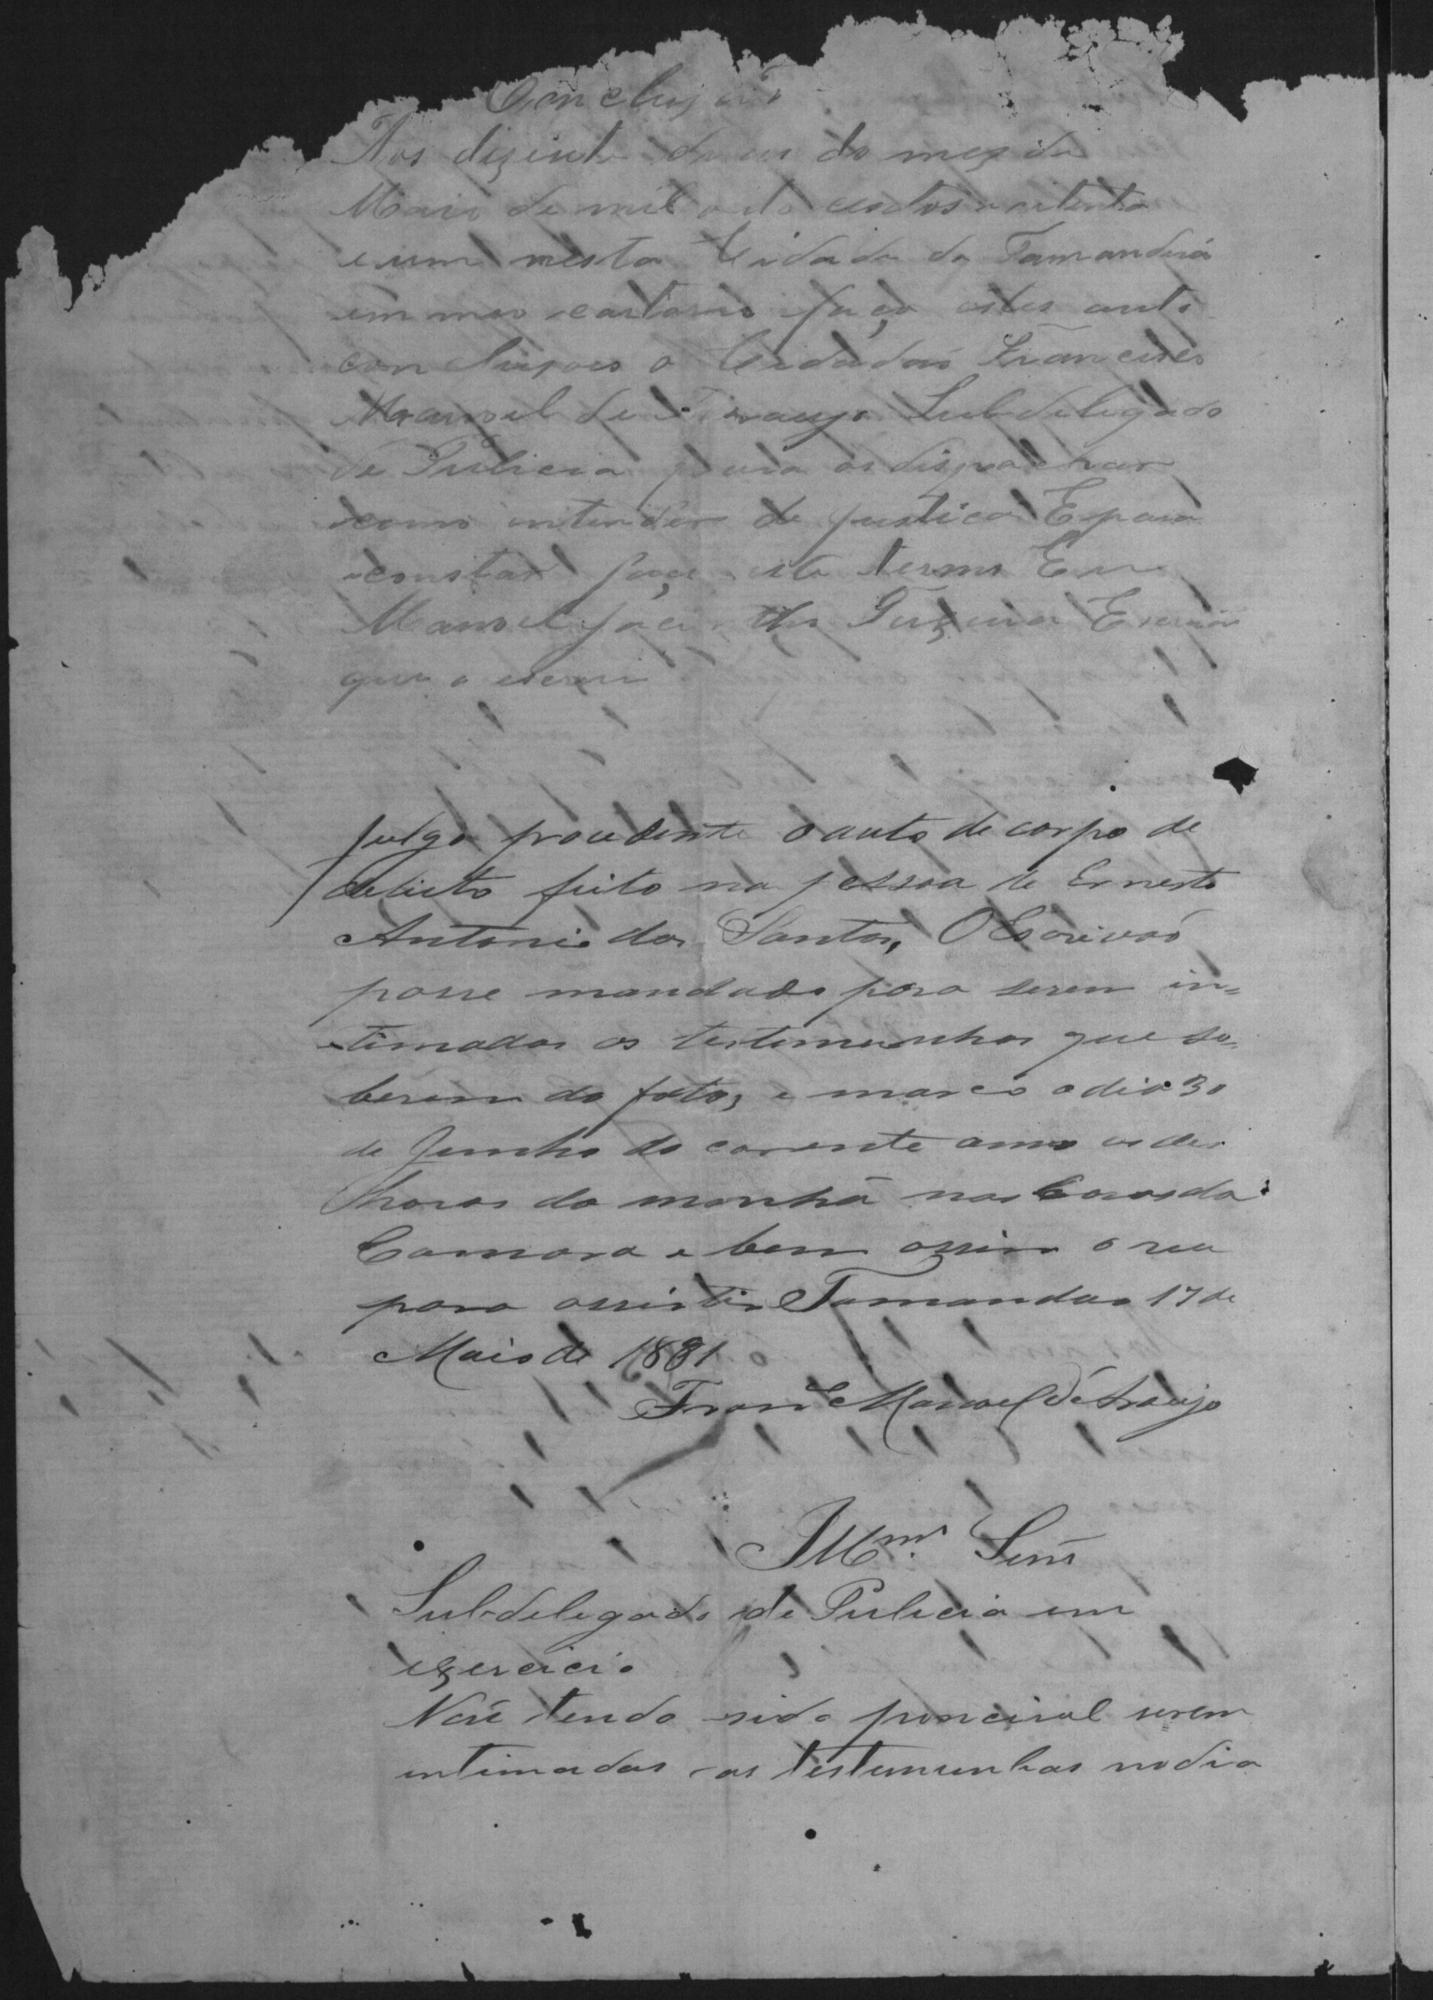 Concluzão
Aos dizeseite dias do mez de
Maio de mil oito centos e oitenta
e um nesta Cidade de Tamandua
em meo cartorio faço estes autos
concluzos o Cidadão Francisco
Manoel de Araujo Subdelegado
de Pulicia para os dispachar
como intender de justica E para
constar faço este termo Eu
Manoel Jacintho Escrivão
que o escrevi
Julgo procedente o auto de corpo de
delicto feito na pessoa de Ernesto
Antonio dos Santos, O Escrivão
passe mandado para serem in=
timados as testemunhas que sa=
berem do fato, e marco o dia 30
de Junho do corrente anno as des
horas da manhã nas Casas da
Camara e bem assim o reu
para assistir Tamandua 17 de
Maio de 1881
Fran.co Manoel de Araujo
Illmo. Senr
Subdelegado de Pulicia em
ezercicio
Não tendo sido poncivel serem
intimadas as testemunhas no dia